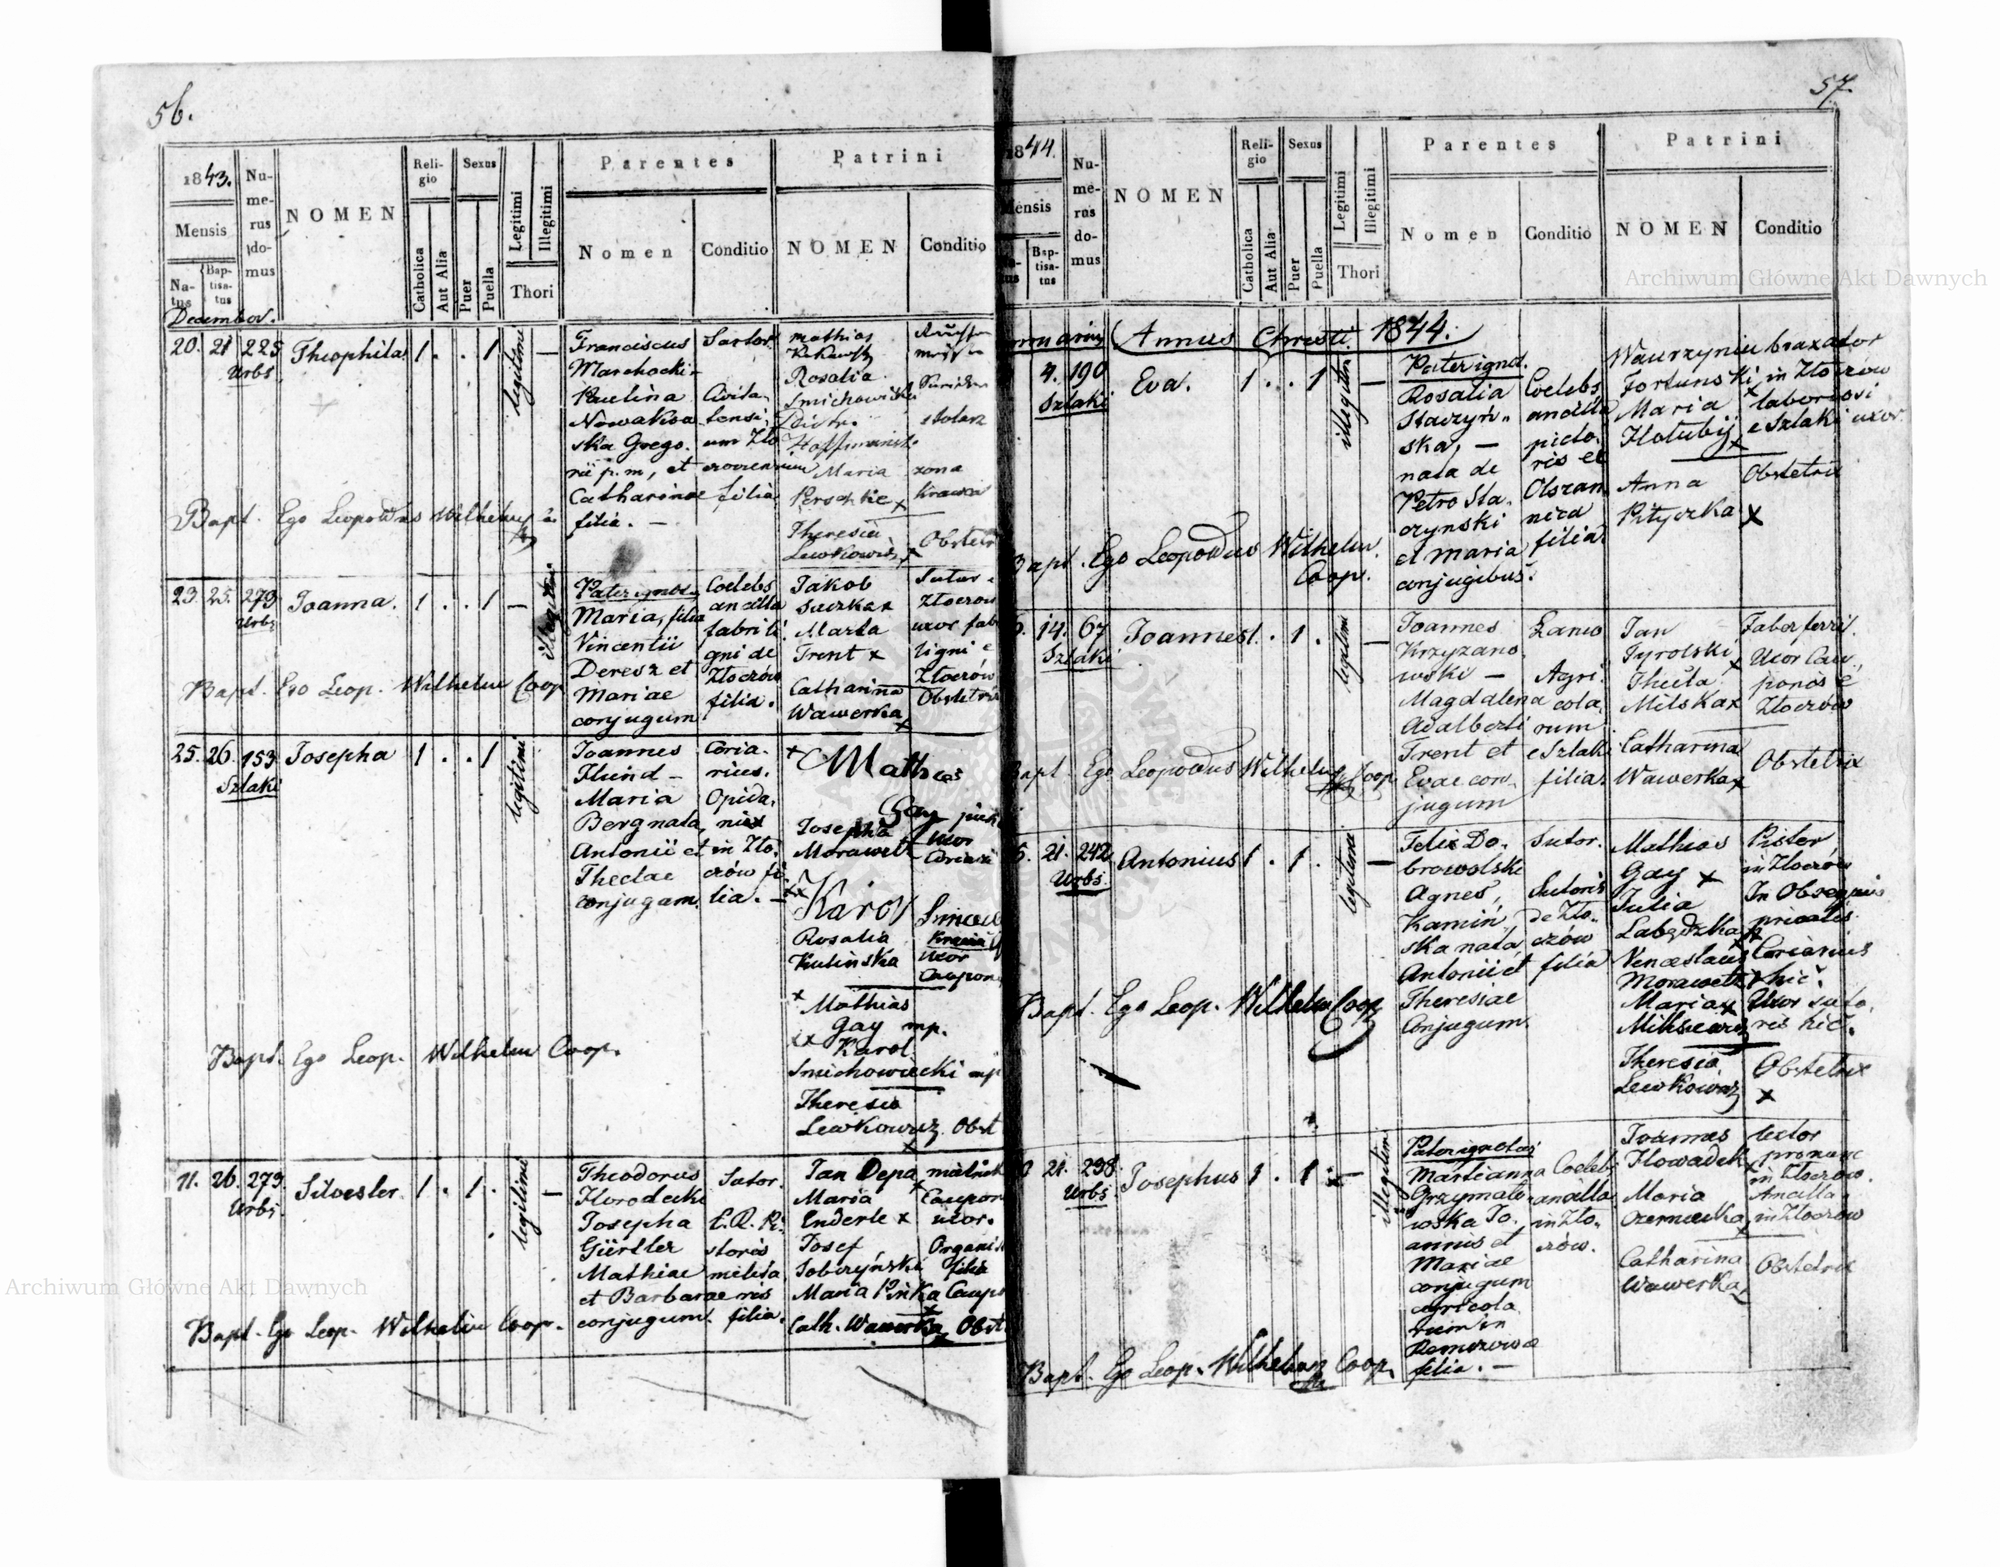 56.
1843.
Mensis
Na-
tus
Bap-
tisa-
tus
Nu-
me-
rus
do-
mus
NOMEN
Reli-
gio
Catholica
Aut Alia
Sexus
Puer
Puella
Legitimi
Illegitimi
Thori
Parentes
Nomen
Conditio
Patrini
NOMEN
Conditio
December.
20. 21 225
Urbs
Theophila
1 . . 1
legitimi
—
Franciscus
Marchocki
Paulina
Nowakow
ska Grego.
rii p.m, et
Catharinae
filia. —
Sartor
Civita-
tensi-
um Zło
czoviensium
filia
Mathias
Rosalia
Smichowiecki
Piotr
Maria
Theresia
Lewkowicz x
stolarz
zona
Krawca
Obstetrix
Bapt. Ego Leopoldus Wilhelm
23. 25. 279
Urbs
Joanna.
1 . . 1
—
illegitimi
Pater ignotus
Maria, filia
Vincentii
Deresz et
Mariae
conjugum
Coelebs
ancilla
fabri li
gni de
Złoczów
filia.
Jakob
Suczka x
Marta
Trent x
Catharina
Wawerka x
Sutor
Złoczow
uxor fab
ligni e
Złoczów
Obstetrix
Bapt. Ego Leop. Wilhelm Coop
25. 26. 153
Szlaki
Josepha
1 . . 1
legitimi
Joannes
Hund —
Maria
Bergnata,
Antonii et
Theclae
conjugum
Coria-
rius.
Opida-
nis
in Zło-
czów fi
lia. —
x Mathias
Gay
Josepha
Morawetz
Uxor
xx Karol
Rosalia
Kulinska
Uxor
Caupon
x Mathias
Gay mp.
xx Karol
Smichowiecki mp
Theresia
Lewkowicz Obst
x
Bapt. Ego Leop. Wilhelm Coop.
11. 26. 279
Urbs.
Silvester
1 . 1 .
legitimi
—
Theodorus
Horodecki
Josepha
Gürtler
Mathiae
et Barbarae
conjugum.
Sutor.
C. R.
storis
milita
ris
filia.
Jan Depa
Maria
Enderle x
Josef
Sobczyński
Maria Pinka
Cath. Wawerka
Caupon
uxor.
Organis
filia
Caupo
Obst.
Bapt. Ego Leop. Wilhelm Coop.
57.
1844.
Mensis
Na-
tus
Bap-
tisa-
tus
Nu-
me-
rus
do-
mus
NOMEN
Reli-
gio
Catholica
Aut Alia
Sexus
Puer
Puella
Legitimi
Illegitimi
Thori
Parentes
Nomen
Conditio
Patrini
NOMEN
Conditio
Annus Christi 1844.
4. 190
Szlaki
Eva.
1 . . 1
illegitimi
—
Pater ignot.
Rosalia
Staczyń-
ska, —
nata de
Petro Sta-
czynski
et Maria
conjugibus.
Coelebs
ancilla
picto-
ris et
Olszan
nica
filia
Wawrzyniec braxator
Fortunski in Złoczów
Maria x laboriosi
Hołubij e Szlaki uxor
x
Anna
Pityczka x
Obstetrix
Bapt. Ego Leopoldus Wilhelm.
Coop.
14. 67
Szlaki
Joannes
1 . 1 .
legitimi
—
Joannes
Krzyzano
wski —
Magdalena
Adalberti
Trent et
Evae con-
jugum
Agri-
cola,
rum
e Szlaki
filia.
Jan
Tyrolski
x
Thecla
Milska x
Catharina
Wawerka x
Faber ferri.
Uxor Cau-
ponis e
Złoczów
Obstetrix
Bapt. Ego Leopoldus Wilhelm Coop
21. 242
Urbs.
Antonius
1 . 1 .
legitimi
—
Felix Do-
browolski
Agnes,
Kamin
ska nata
Antonii et
Theresiae
Conjugum.
Sutor.
Sutoris
de Zło-
czów
filia
Mathias
Gay x
Julia
Labędzka x
Venceslaus
Morawetz x
Maria x
Theresia
Lewkowicz
Pistor
in Złoczów
In Obsequiis
privatis
Coriarius
hic.
Uxor suto-
ris hic.
Obstetrix
x
Bapt. Ego Leop. Wilhelm Coop
21. 298.
Urbs.
Josephus
1 . 1
illegitimi
Pater ignotus
Marianna
Grzymalo-
wska Jo-
annis et
Mariae
conjugum
agricola
rum in
Remizowce
filia. —
Coelebs
ancilla
in Zło-
czów.
Joannes
Hlowadek
Maria
Czernecka
Catharina
Wawerka
lector
in Złoczów.
Ancilla
in Złoczów
Obstetrix
Bapt. Ego Leop. Wilhelm Coop.
Archiwum Główne Akt Dawnych
Archiwum Główne Akt Dawnych